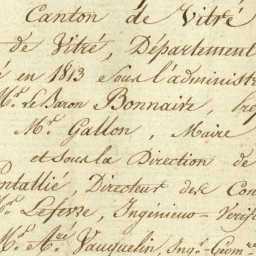 Canton de Vitré
de Vitré, Département
é en 1813 sous l'administr
Mr. Le Baron Bonnaire, Pré
Mr. Gallon, Maire
et sous la Direction de
ontallié, Directeur des Con
Mr. Lefevre, Ingénieur-Vérif
Mr. Aé. Vauquelin, Ingr.-Géomre